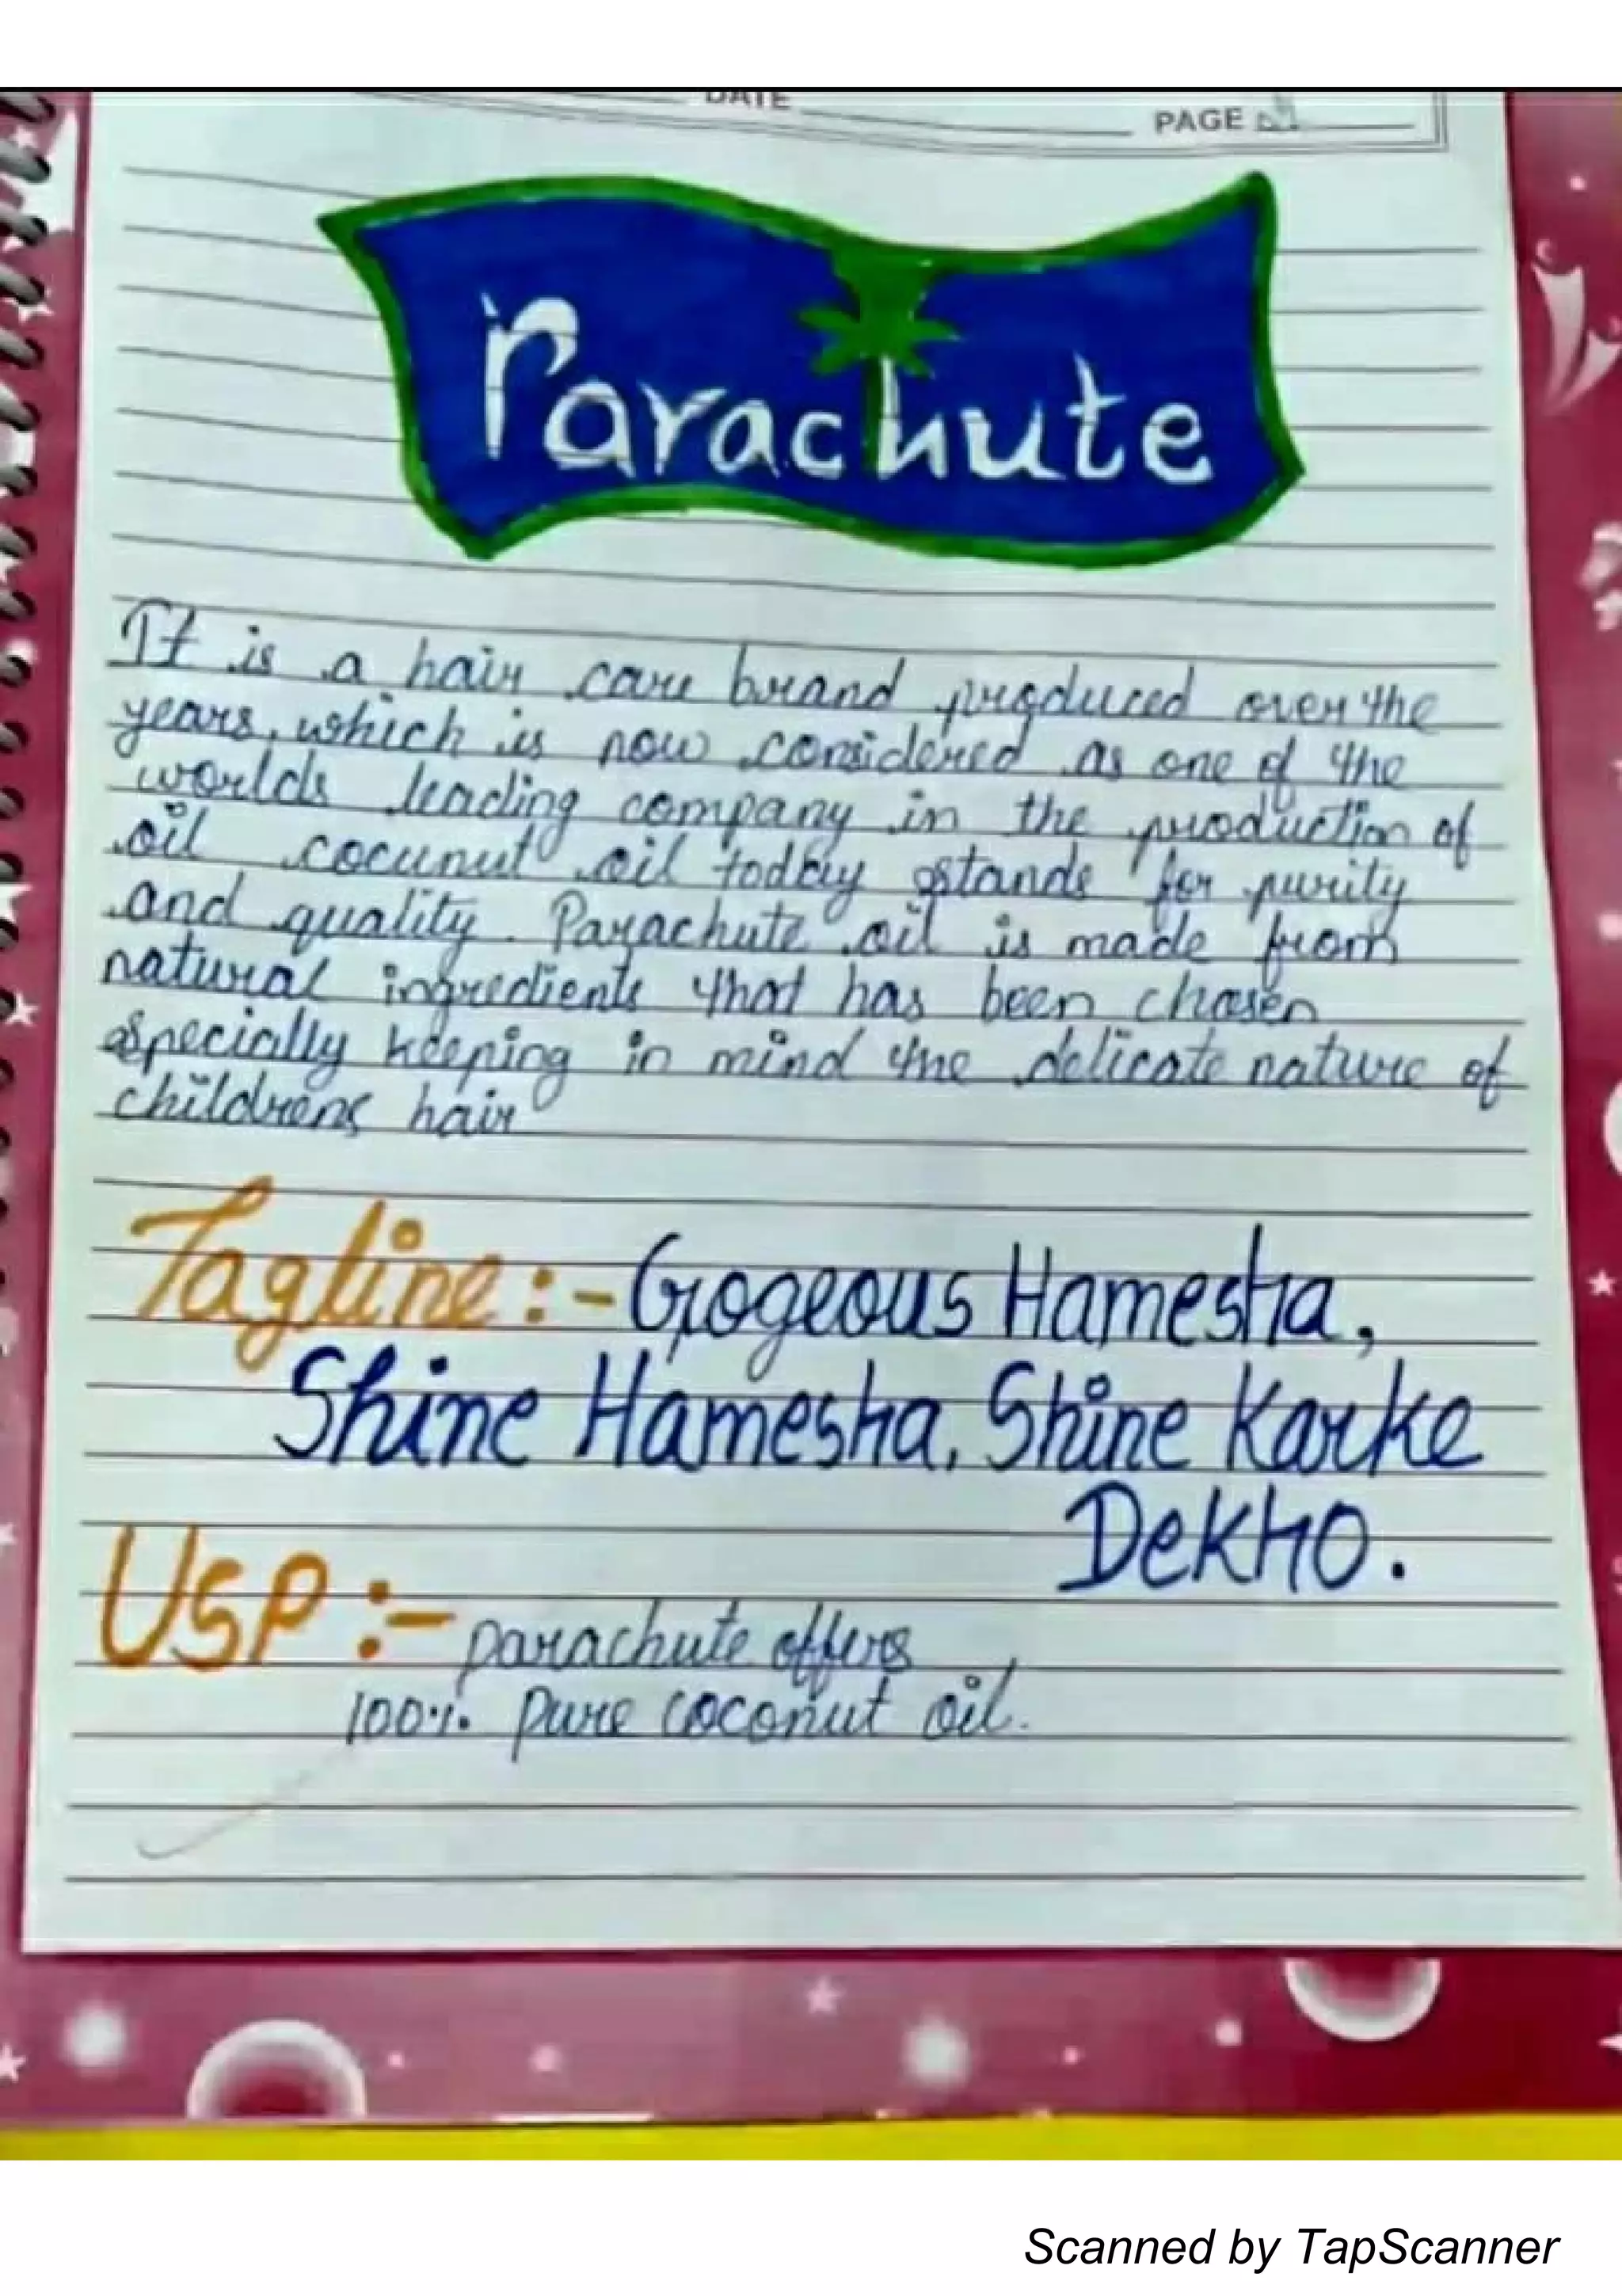 DATE
PAGE
Parachute
It is a hair care brand produced over the
years, which is now considered as one of the
worlds leading company in the production of
oil cocunut oil today stands for purity
and quality. Parachute oil is made from
natural ingredients that has been chosen
especially keeping in mind the delicate nature of
childrens hair
Tagline :- Gogeous Hamesha,
Shine Hamesha, Shine Karke
Dekho.
USP :- parachute offers
100% pure coconut oil.
Scanned by TapScanner